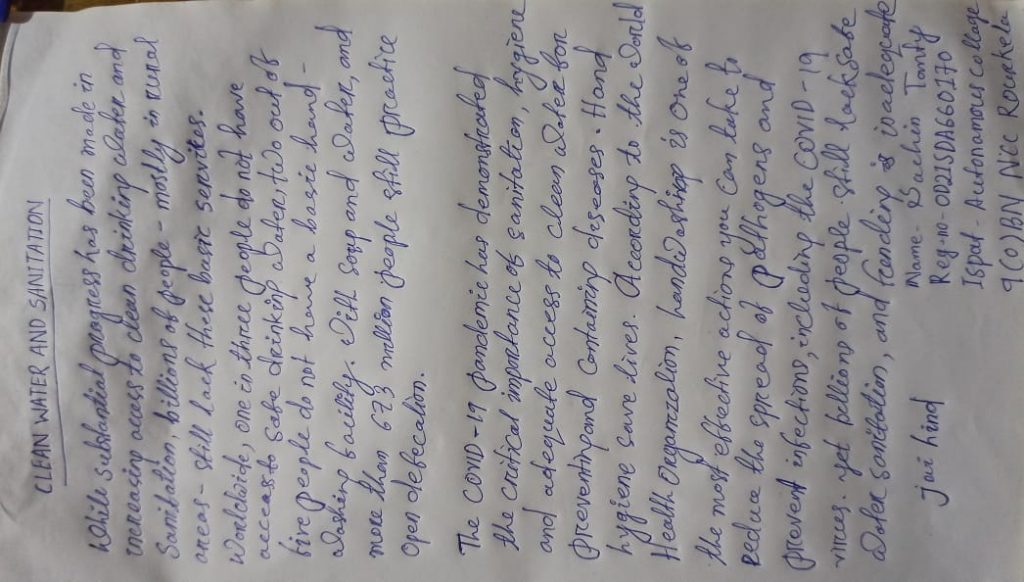 CLEAN WATER AND SANITATION
While substantial progress has been made in
increasing access to clean drinking water and
Sanitation, billions of people - mostly in rural
areas - still lack these basic services.
Worldwide, one in three people do not have
access to safe drinking water, two out of
five people do not have a basic hand -
washing facility. with soap and water, and
more than 673 million people still practice
Open defecation.
The COVID-19 pandemic has demonstrated
the critical importance of sanitation, hygiene
and adequate access to clean water for
preventing and containing diseases. Hand
hygiene save lives. According to the World
Health Organization, handwashing is one of
the most effective actions you can take to
reduce the spread of pathogens and
prevent infections, including the COVID-19
virus. yet billions of people still lack safe
Water sanitation, and funding is inadequate
Jai hind
Name - Sachin Tanty
Reg-no - OD21SDA660170
Ispat - Autonomous College
9(O)BN Ncc Rourkela